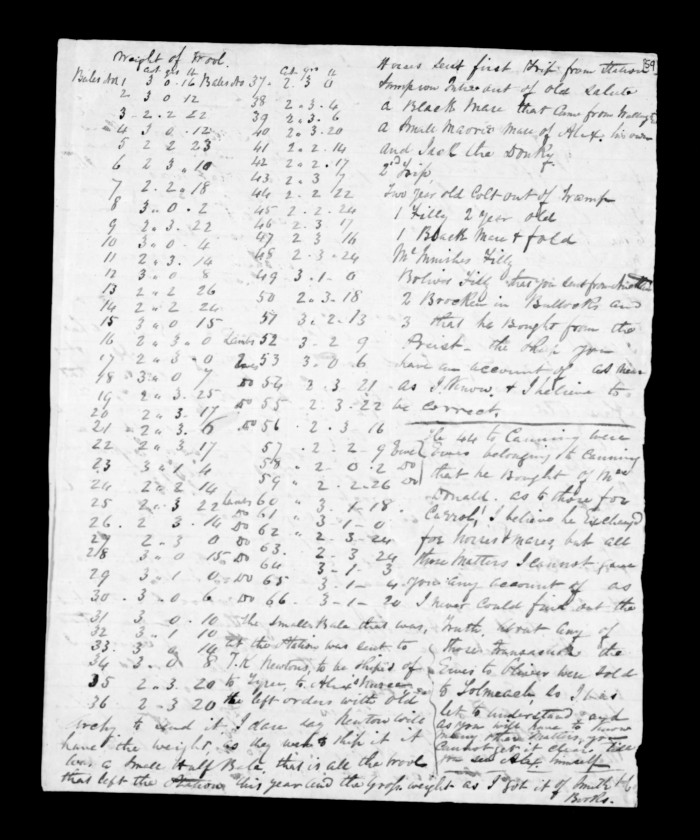 Weight of Wool.
Bales No 1 3 " 0 " 16
2 3 " 0 " 12
3 2 " 2 " 22
4 3 " 0 " 12
5 2 2 23
6 2 3 " 10
7 2 " 2 " 18
8 3 " 0 " 2
9 2 " 3 " 22
10 3 " 0 4
11 2 " 3 " 14
12 3 " 0 8
13 2 " 2 26
14 2 " 2 24
15 3 " 0 15
16 2 " 3 " 0
17 2 " 3 " 0
18 3 " 0 7
19 2 " 3 " 25
20 2 " 3 " 17
21 2 " 3 " 15
22 2 " 3 " 17
23 3 " 1 " 4
24 2 " 2 14
25 2 " 3 22
26 2 " 3 " 14
27 2 " 3 0
28 3 " 0 15
29 3 " 1 0
30 3 " 0 6
31 3 " 0 " 10
32 3 " 1 10
33 3 " 0 14
34 3 " 0 8
35 2 " 3 " 20
36 2 " 3 20
Bales No 37 2 " 3 0
38 2 " 3 " 4
39 2 " 3 " 6
40 2 " 3 " 20
41 2 " 2 " 14
42 2 " 2 " 17
43 2 " 3 7
44 2 " 2 22
45 2 " 2 " 24
46 2 " 3 17
47 2 3 16
48 2 " 3 " 24
49 3 " 1 " 0
50 2 " 3 " 18
51 3 " 2 " 13
Lambs 52 3 " 2 9
53 3 " 0 6
Do 54 2 " 3 " 21
Do 55 2 " 3 " 22
Do 56 2 " 3 16
57 " 2 " 2 " 9
58 " 2 " 0 " 2 Do
59 " 2 " 2 " 26 Do
60 " 3 " 1 " 18
Do 61 " 3 " 1 " 0
Do 62 " 2 " 3 " 24
Do 63 2 " 3 24
64 3 " 1 " 3
Do 65 3 " 1 " 4
Do 66 3 " 1 " 20
The Small Bale that was
at the Station was sent to
T.K Newtons, to be Shiped
to Alex
he left orders with Old
to send it. I dare say Newton will
have the weight, as they were to ship it it
was a Small Half Bale that is all the Wool
that left the Station this year and the Gross weight as I got it of Smith & Co
Books.
59
Horses Sent first Trip from Station
out of old Salute
a Black Mare that Came from
a Small Maorie Mare of Alex. his own
and Jack the Donky
2nd Trip
Two year old Colt out of Tramp
1 Filly 2 year old
1 Black Mare & fold
Filly
Bolivos Filly that you Sent from
2 Brocken in Bullocks and
3 that he Bought from the
Priest - the Ship you
have an account of as near
as I Know & I believe to
be Correct.
The 44 to Canning were
Ewes belonging to Canning
that he Bought of Mr
Donald. as to those for
Carrol, I believe he Exchanged
for horses & mares, but all
those Matters I cannot give
you any account of as
I never Could find out the
Truth about any of
those transactions the
Ewes to Oliver were Sold
to so I was
let to understand and
as you will have to know
many other Matters, you
cannot get it clear, till
you see Alex himself